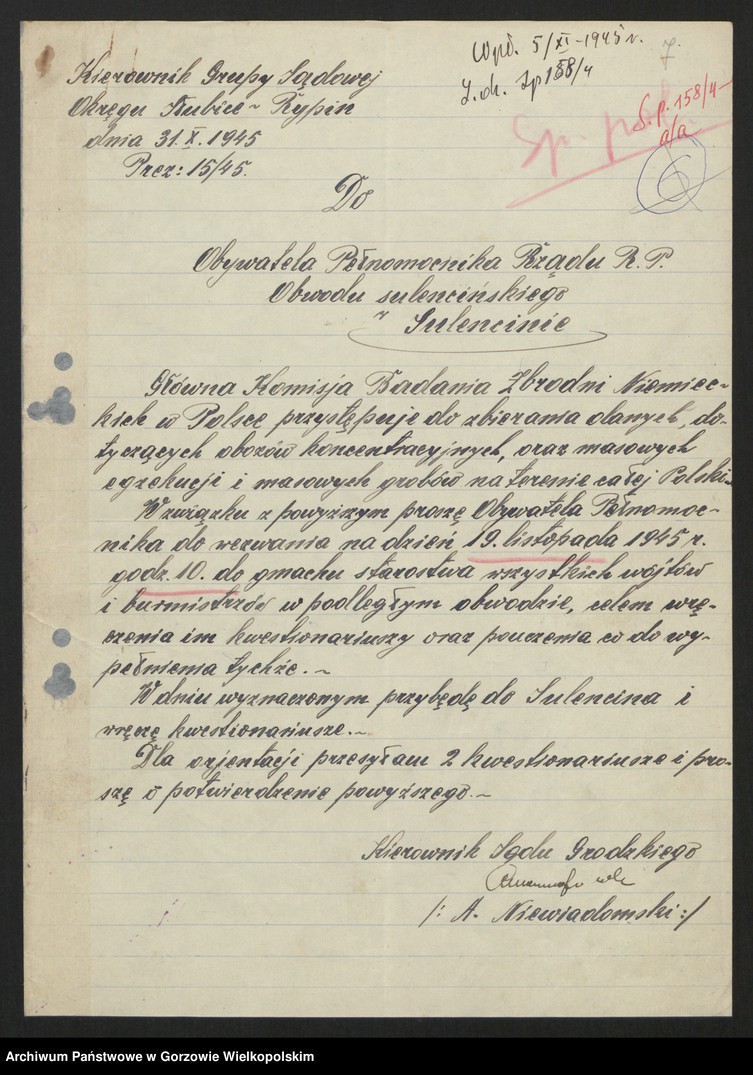 Wpł. 5/XI-1945 r.
L.dz. Sp 158/4
7.
Kierownik Grupy Sądowej
Okręgu Słubice - Rypin
dnia 31.X.1945
Prez: 15/45.
S.p. 158/4
a/a
Sp. pol.
6
Do
Obywatela Pełnomocnika Rządu R.P.
Obwodu sulencińskiego
w Sulencinie
Główna Komisja Badania Zbrodni Niemiec-
kich w Polsce przystępuje do zbierania danych, do-
tyczących obozów koncentracyjnych, oraz masowych
egzekucji i masowych grobów na terenie całej Polski.
W związku z powyższym proszę Obywatela Pełnomoc-
nika do wezwania na dzień 19. listopada 1945 r.
godz. 10. do gmachu starostwa wszystkich wójtów
i burmistrzów w podległym obwodzie, celem wrę-
czenia im kwestionariuszy oraz pouczenia co do wy-
pełnienia tychże.-
W dniu wyznaczonym przybędę do Sulencina i
wręczę kwestionariusze.-
Dla orjentacji przesyłam 2 kwestionariusze i pro-
szę o potwierdzenie powyższego.-
Kierownik Sądu Grodzkiego
/: A. Niewiadomski :/
Archiwum Państwowe w Gorzowie Wielkopolskim